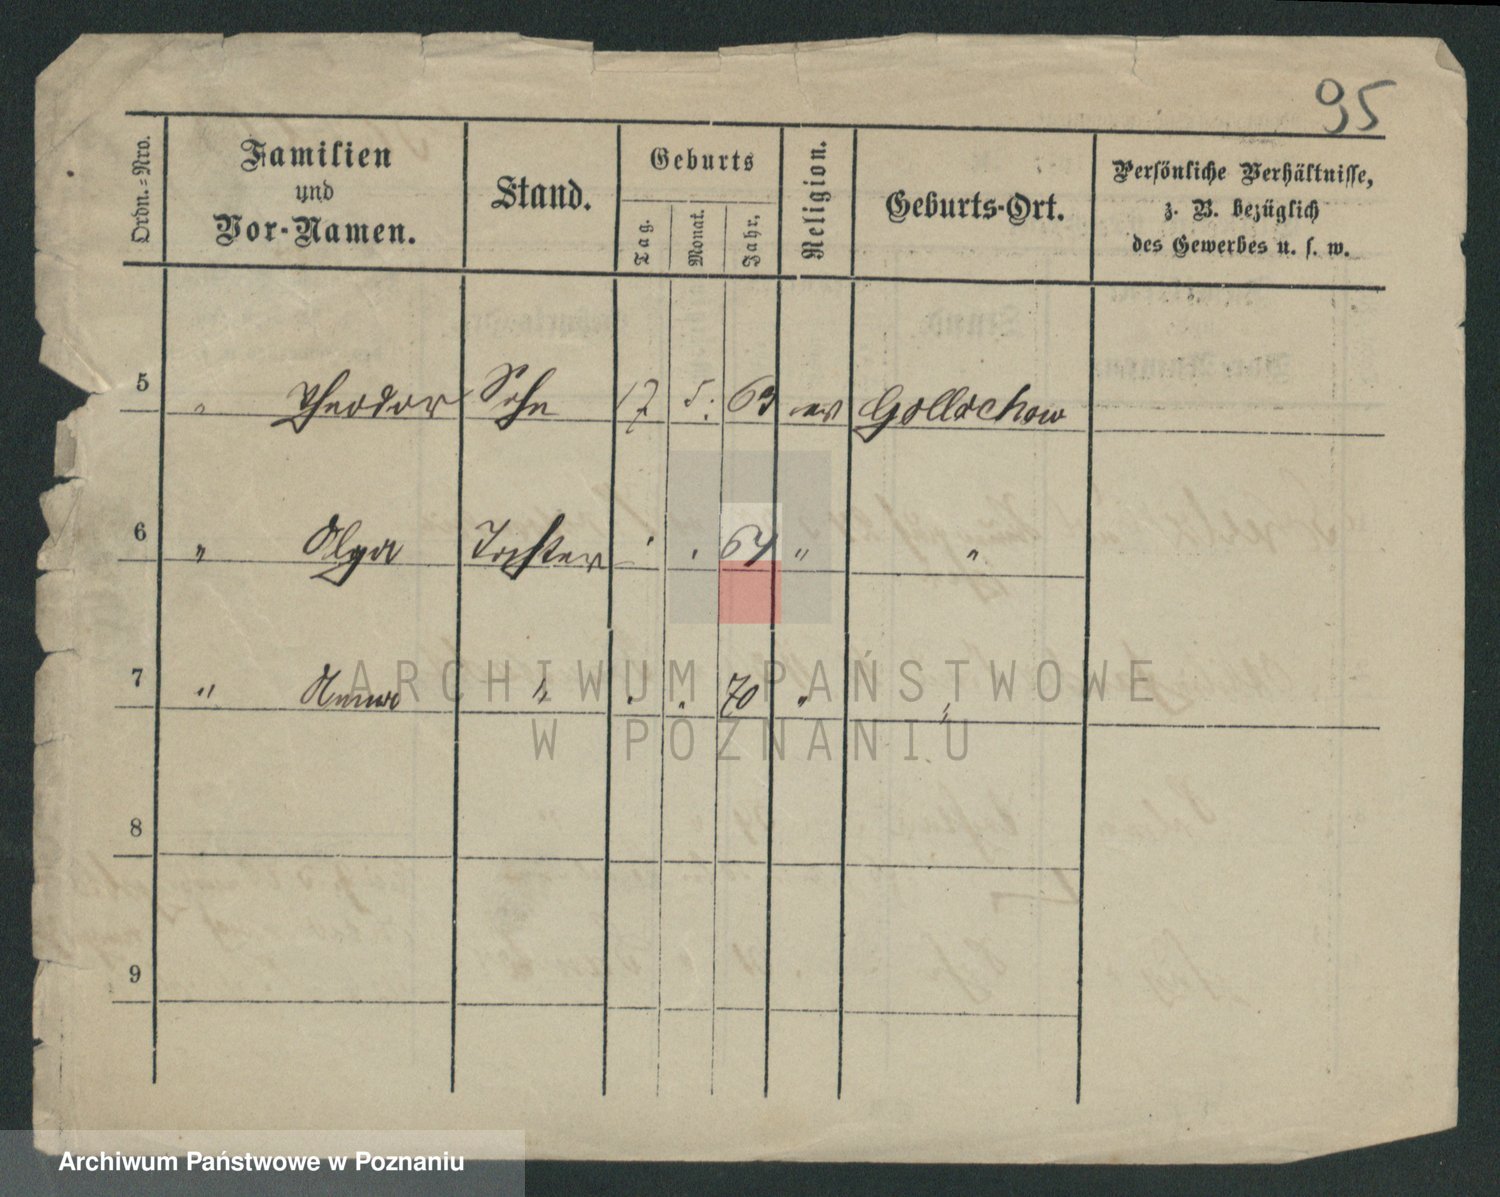 95
Ordn.-Nro.
Familien
und
Vor-Namen.
Stand.
Geburts
Tag.
Monat.
Jahr.
Religion.
Geburts-Ort.
Persönliche Verhältnisse,
z. B. bezüglich
des Gewerbes u. s. w.
5 " Theodor Sohn 17 5. 63 ev Gollochow
6 " Olga Tochter " " 64 " "
7 " Anna " " " 70 " "
ARCHIWUM PAŃSTWOWE
W POZNANIU
8
9
Archiwum Państwowe w Poznaniu